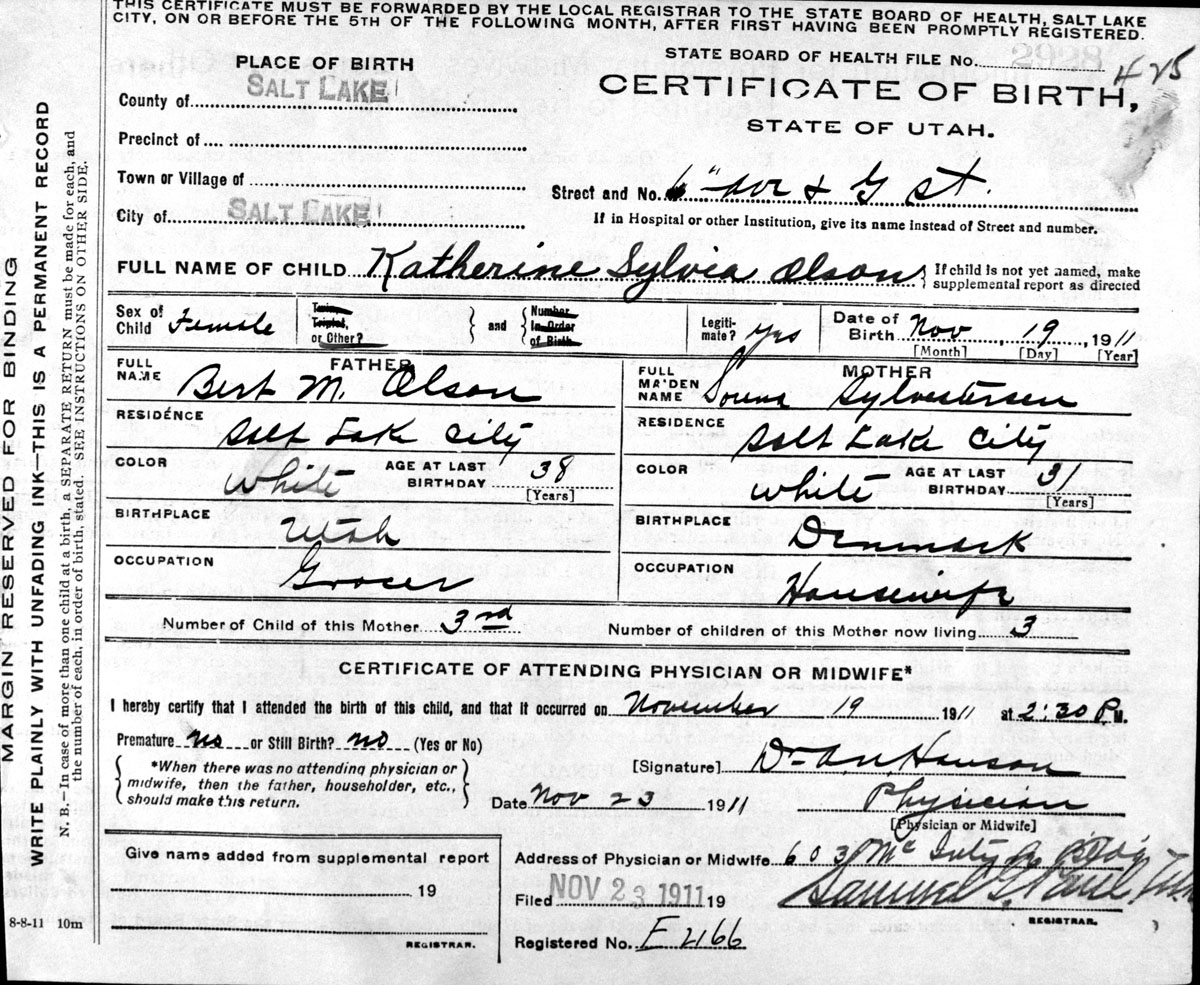 THIS CERTIFICATE MUST BE FORWARDED BY THE LOCAL REGISTRAR TO THE STATE BOARD OF HEALTH, SALT LAKE
CITY, ON OR BEFORE THE 5TH OF THE FOLLOWING MONTH, AFTER FIRST HAVING BEEN PROMPTLY REGISTERED.
MARGIN RESERVED FOR BINDING
WRITE PLAINLY WITH UNFADING INK—THIS IS A PERMANENT RECORD
N. B.—In case of more than one child at a birth, a SEPARATE RETURN must be made for each, and
the number of each, in order of birth, stated. SEE INSTRUCTIONS ON OTHER SIDE.
PLACE OF BIRTH
STATE BOARD OF HEALTH FILE No. 425
CERTIFICATE OF BIRTH,
STATE OF UTAH.
County of SALT LAKE
Precinct of
Town or Village of
Street and No. 6" ave & G st.
City of SALT LAKE
If in Hospital or other Institution, give its name instead of Street and number.
FULL NAME OF CHILD Katherine Sylvia Olson { If child is not yet named, make
supplemental report as directed
Sex of Child Female
Twin, Triplet, or Other? } and { Number In Order of Birth
Legiti-mate? yes
Date of Birth Nov, 19, 1911
[Month] [Day] [Year]
FATHER
FULL NAME Bert M. Olson
RESIDENCE Salt Lake City
COLOR White AGE AT LAST BIRTHDAY 38
[Years]
BIRTHPLACE Utah
OCCUPATION Grocer
MOTHER
FULL MAIDEN NAME Sylvestersen
RESIDENCE Salt Lake City
COLOR White AGE AT LAST BIRTHDAY 31
[Years]
BIRTHPLACE Denmark
OCCUPATION Housewife
Number of Child of this Mother 3rd
Number of children of this Mother now living 3
CERTIFICATE OF ATTENDING PHYSICIAN OR MIDWIFE*
I hereby certify that I attended the birth of this child, and that it occurred on November 19 1911 at 2:30 P.M.
Premature no or Still Birth? no (Yes or No)
{ *When there was no attending physician or
midwife, then the father, householder, etc.,
should make this return. }
[Signature] Dr A.N. Hanson
Date Nov 23 1911 Physician
[Physician or Midwife]
Give name added from supplemental report
19
REGISTRAR.
Address of Physician or Midwife 603 Bldg
Filed NOV 23 1911 19 Samuel G.
REGISTRAR.
Registered No. E 2166
8-8-11 10m